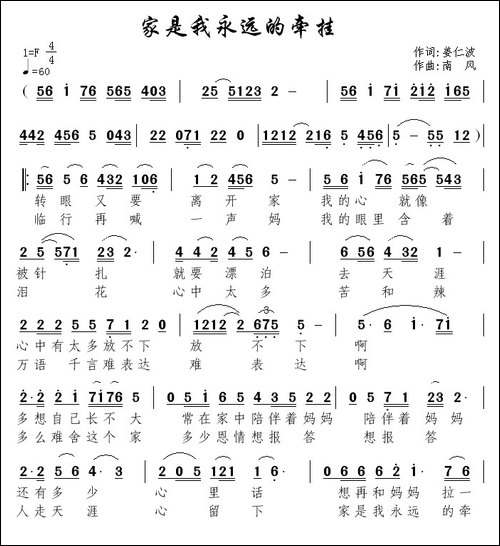 家是我永远的牵挂
1=F 4/4
♩=60
作词:姜仁波
作曲:南 风
( 56 i 76 565 403 | 25 5123 2 - | 56 i 7i 2i2 i65 |
442 456 5 043 | 22 071 22 0 | 1212 216 5 456 | 5 - 55 12 )
‖: 56 5 6 432 106 | 1 2 456 5 - | 5 6 i 76 565 543 |
转 眼 又 要 离 开 家 我 的 心 就 像
临 行 再 喊 一 声 妈 我 的 眼 里 含 着
2 5 571 23 2· | 4 4 2 4 5 6 - | 6 56 42 32 1 - |
被 针 扎 就 要 漂 泊 去 天 涯
泪 花 心 中 太 多 苦 和 辣
2 2 2 5 5 7 1 2 0 | 1212 2 675 5 - | 5· 6 i· 7i |
3
心 中 有 太 多 放 不 下 放 不 下 啊
万 语 千 言 难 表 达 难 表 达 啊
2· 2 2 i 7i76 5 | 0 5 i 6 5 4 5 6 5 5 | 0 5 7 1 23 2· |
多 想 自 己 长 不 大 常 在 家 中 陪 伴 着 妈 妈 陪 伴 着 妈 妈
多 么 难 舍 这 个 家 多 少 恩 情 想 报 答 想 报 答
5· 2 5 6 4· 3 | 2 0 5 121 6· | 0 6 6 6 2 i· 7 6 |
还 有 多 少 心 里 话 想 再 和 妈 妈 拉 一
人 走 天 涯 心 留 下 家 是 我 永 远 的 牵